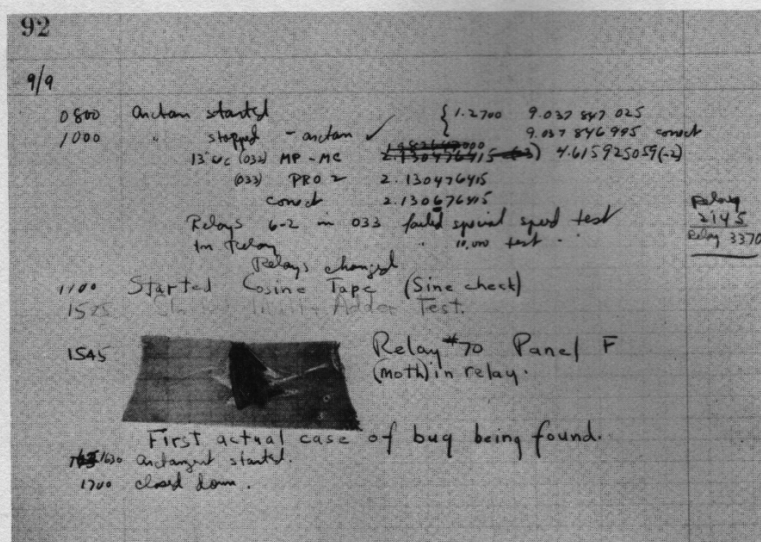 92
9/9
0800 arctan started { 1.2700 9.037 847 025
1000 " stopped - arctan ✓ 9.037 846 995 correct
13"uc (032) MP - MC 2.130476415 (-3) 4.615925059(-2)
(033) PRO 2 2.130476415
correct 2.130676415
Relays 6-2 in 033 failed special speed test
In Relay " 11,000 test "
Relay
2145
Relay 3370
Relays changed
1100 Started Cosine Tape (Sine check)
1525 Adder Test.
1545 Relay #70 Panel F
(moth) in relay.
First actual case of bug being found.
1630 arctangent started.
1700 closed down.